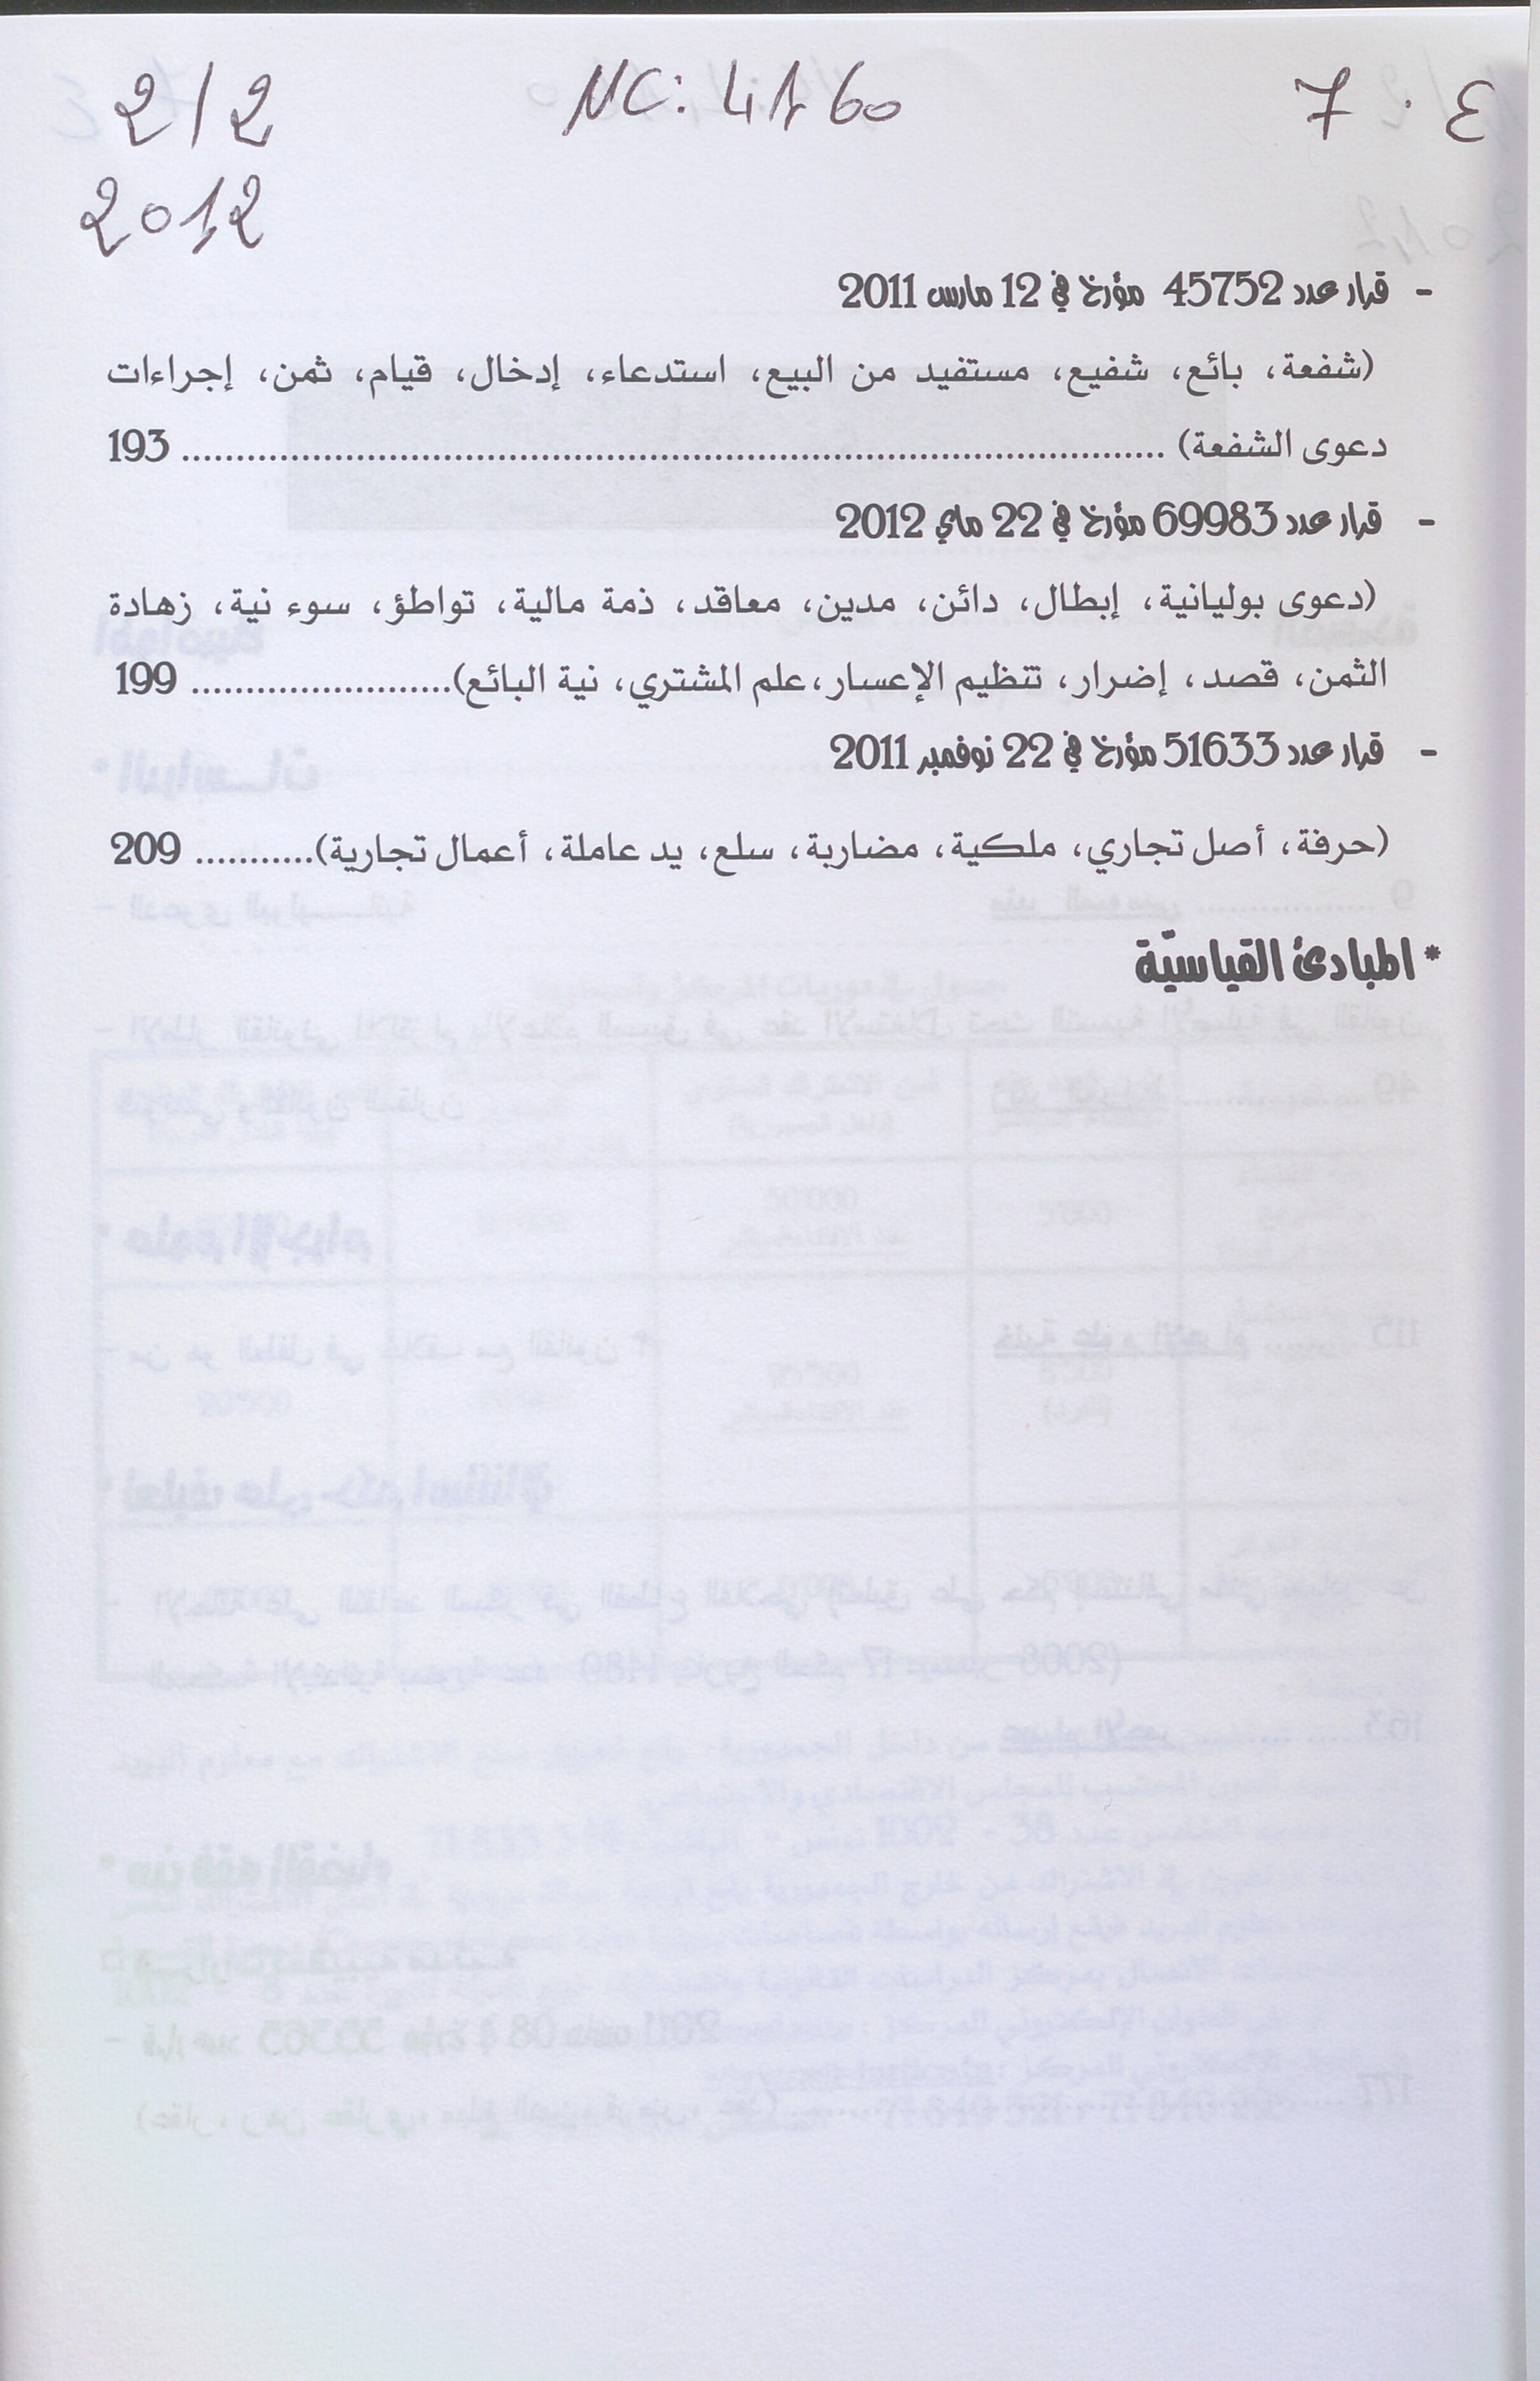 2/2
NC: 4160
7.ع
2012
- قرار عدد 45752 مؤرخ في 12 مارس 2011
(شفعة، بائع، شفيع، مستفيد من البيع، استدعاء، إدخال، قيام، ثمن، إجراءات
دعوى الشفعة) ........................................ 193
- قرار عدد 69983 مؤرخ في 22 ماي 2012
(دعوى بوليانية، إبطال، دائن، مدين، معاقد، ذمة مالية، تواطؤ، سوء نية، زهادة
الثمن، قصد، إضرار، تنظيم الإعسار، علم المشتري، نية البائع)........................ 199
- قرار عدد 51633 مؤرخ في 22 نوفمبر 2011
(حرفة، أصل تجاري، ملكية، مضاربة، سلع، يد عاملة، أعمال تجارية)........... 209
* المبادئ القياسيّة